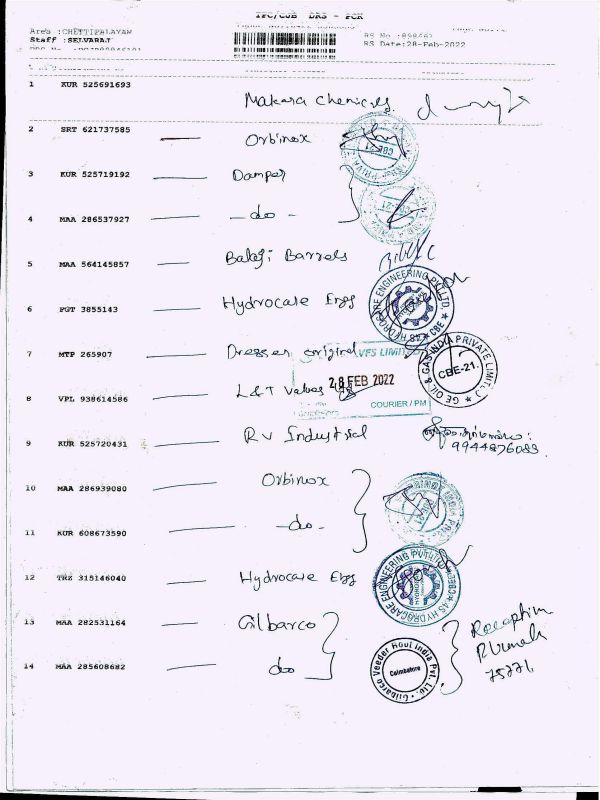 TPC/CJB DRS - PCK
Area :CHETTIPALAYAM
Staff :SELVARAJ
RS Date:28-Feb-2022
1 KUR 525691693
Makara Chemicals.
2 SRT 621737585 Orbinox
CBE-1
3 KUR 525719192 Damper
4 MAA 286537927 - do -
5 MAA 564145857 Balaji Barrels
6 PGT 3855143 Hydrocare Engg
AS HYDROCARE ENGINEERING PVT LTD.
CBE
7 MTP 265907 Dresser original
GE OIL & GAS INDIA PRIVATE LIMITED
CBE-21.
28 FEB 2022
COURIER / PM
8 VPL 938614586 L&T Valves
9 KUR 525720431 RV Industrial
9944876083
10 MAA 286939080 Orbinox
11 KUR 608673590 - do -
12 TRZ 315146040 Hydrocare Engg
AS HYDROCARE ENGINEERING PVT LTD
CBE
13 MAA 282531164 Gilbarco
Reception
14 MAA 285608682 do
Gilbarco Veeder Root India Pvt. Ltd.
Coimbatore